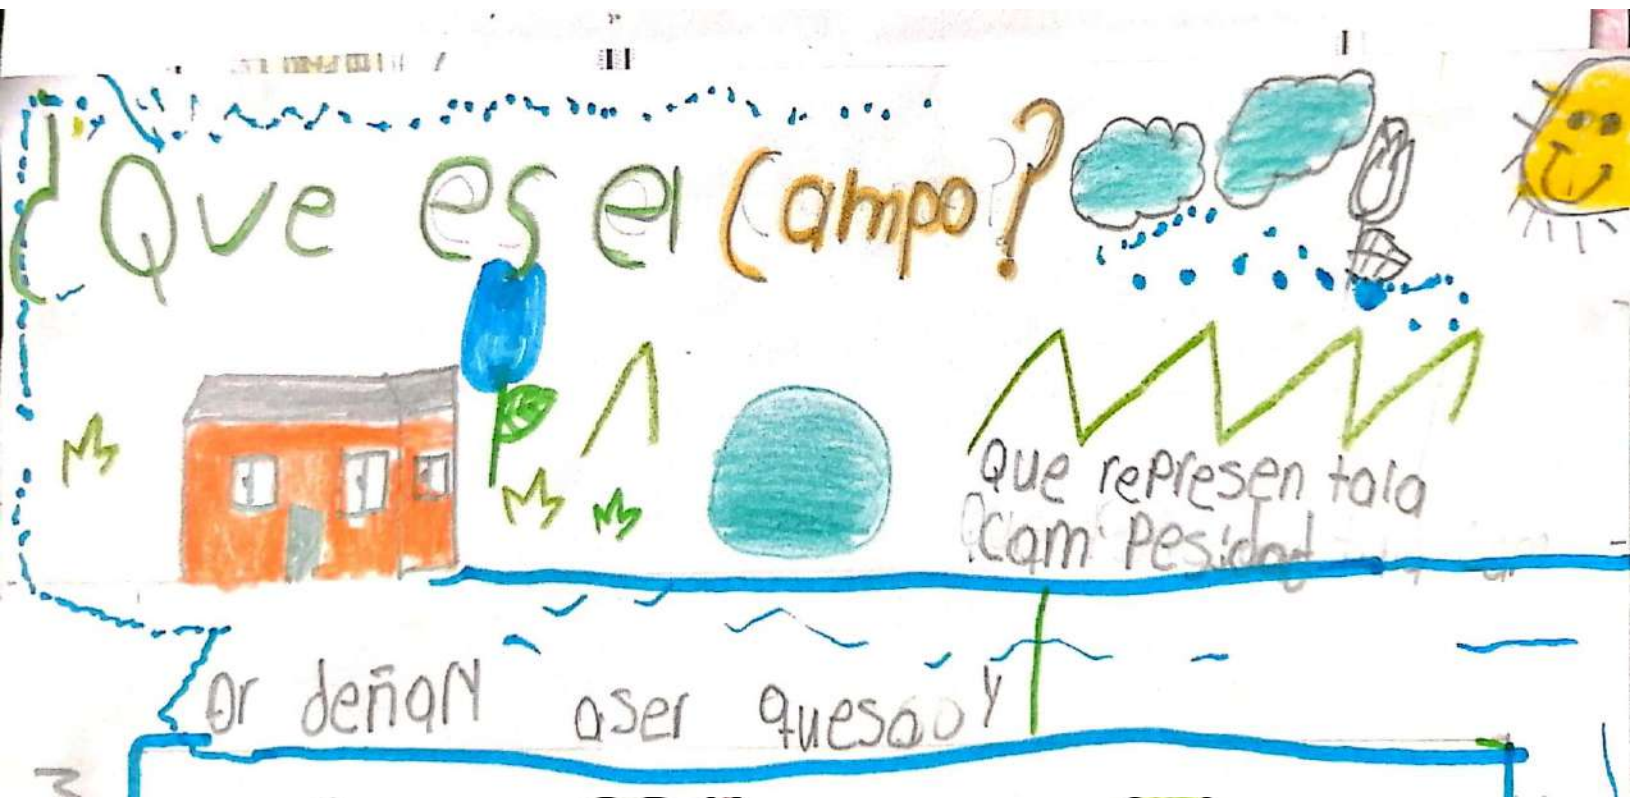 ¿Que es el Campo?
Que represen tala
Cam pesidad
Or deñaN aser queso y